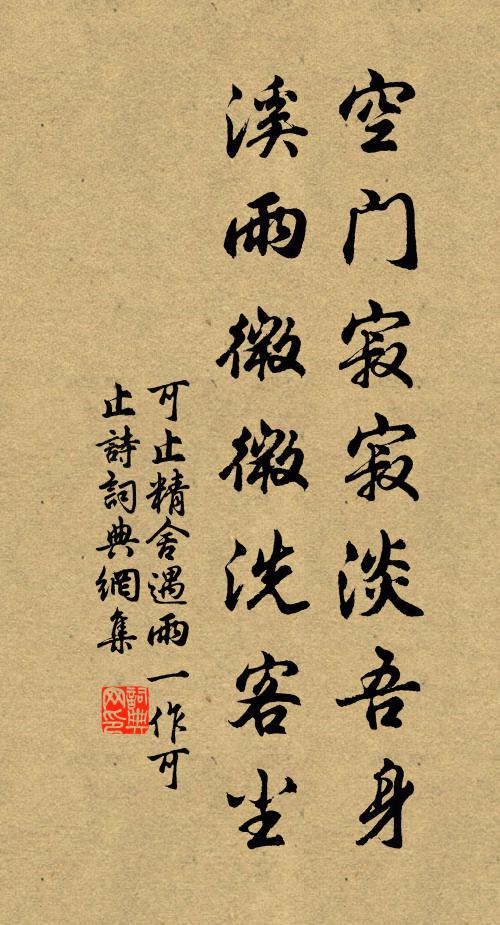 空门寂寂淡吾身
溪雨微微洗客尘
可止精舍遇雨一作可
止詩詞典網集
詞典网印